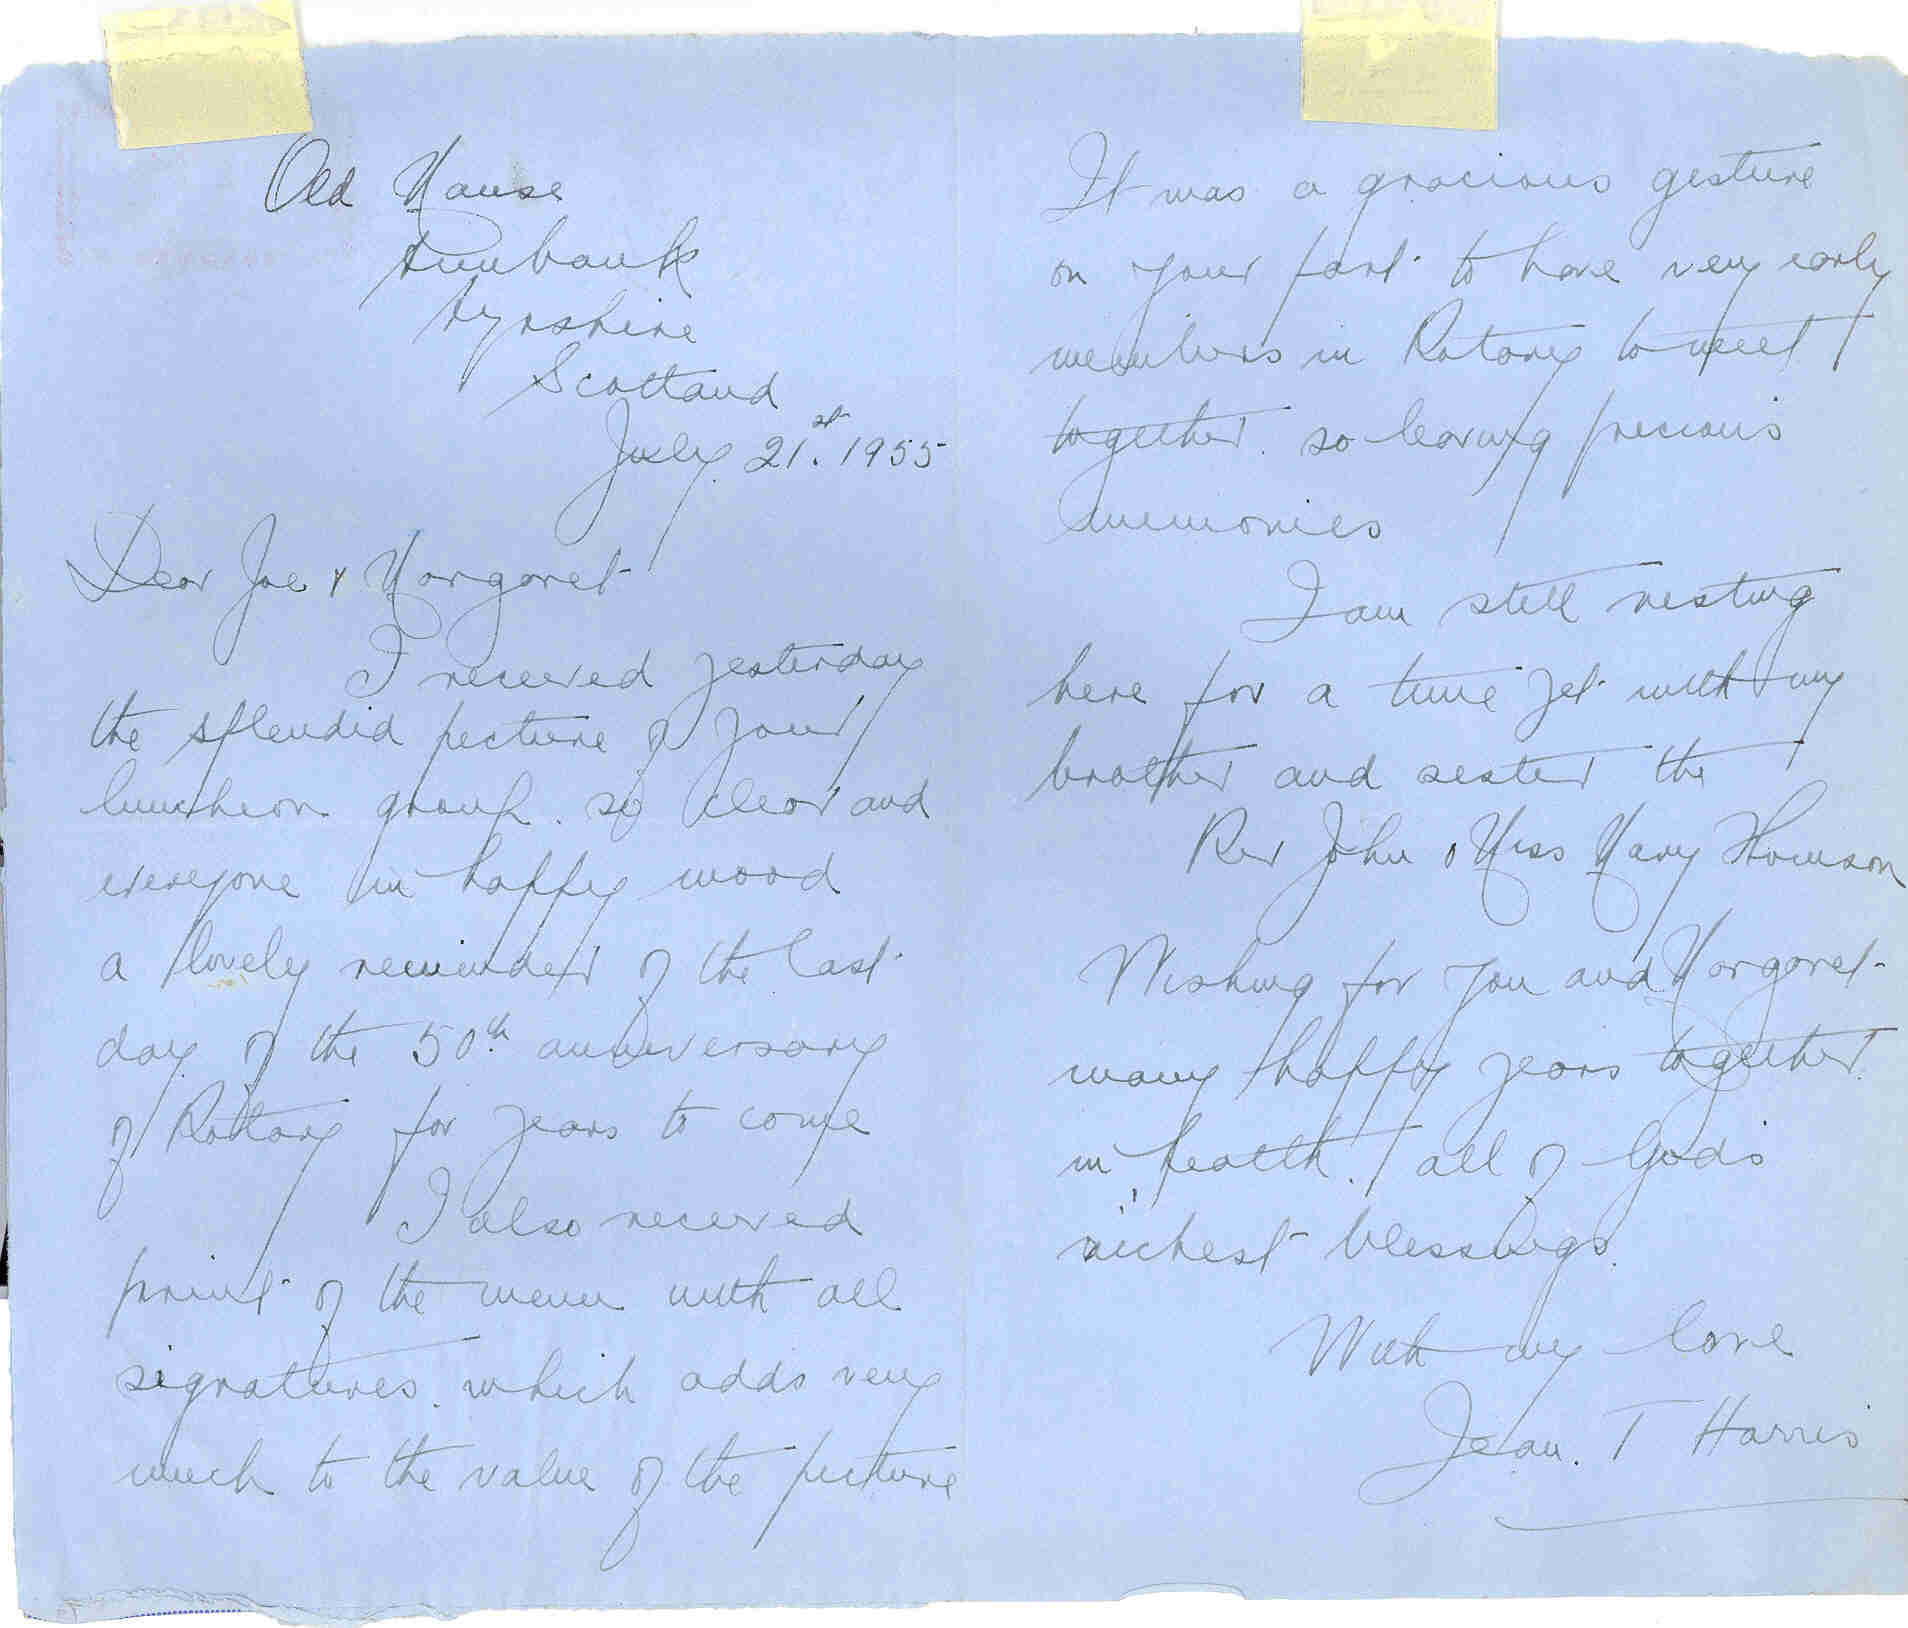 Old Manse
Annbank
Ayrshire
Scotland
July 21.st 1955
Dear Joe & Margaret
I received yesterday
the splendid picture of your
luncheon group. so clear and
everyone in happy mood
a lovely reminder of the last
day of the 50th anniversary
of Rotary for years to come
I also received
print of the menu with all
signatures. which adds very
much to the value of the picture
It was a gracious gesture
on your part to have very early
members in Rotary to meet
together. so leaving precious
memories
I am still resting
here for a time yet with my
brother and sister the
Rev John & Miss Mary Howison
Wishing for you and Margaret
many happy years together.
in health. all of God's
richest blessings.
With my love
Jean. T Harris